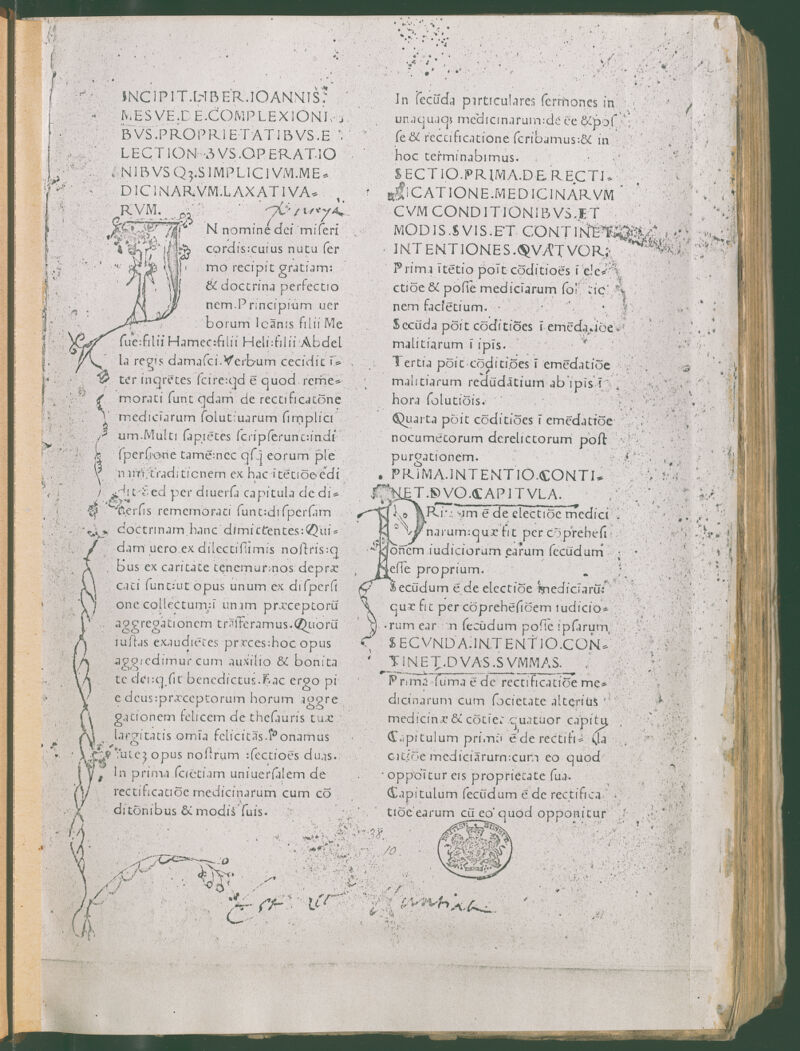 INCIPIT.LIBER.IOANNIS.
MESVE.DE.COMPLEXIONI
BVS.PROPRIETATIBVS.E
LECTIONIBVS.OPERATIO
NIBVSQꝫ.SIMPLICIVM.ME=
DICINARVM.LAXATIVA=
RVM.
IN nomine dei miseri
cordis:cuius nutu ſer
mo recipit gratiam:
& doctrina perfectio
nem.Principium uer
borum Ioānis filii Me
ſue:filii Hamec:filii Heli:filii Abdel
la regis damaſci.Verbum cecidit ī=
ter inqrētes ſcire:qd ē quod reme=
morati ſunt qdam de rectificatōne
mediciarum ſolutiuarum ſimplici
um.Multi ſapiētes ſcripſerunt:indi
ſperſione tamē:nec qſꝗ eorum ple
nam traditionem ex hac itētiōe edi
dit:sed per diuerſa capitula de di=
uerſis rememorati ſunt:diſperſam
doctrinam hanc dimictentes:Qui=
dam uero ex dilectiſſimis noſtris:q
bus ex caritate tenemur:nos depræ
cati ſunt:ut opus unum ex diſperſi
one collectum:ī unam præceptorū
aggregationem trāſferamus.Quorū
iuſtas exaudiētes præces:hoc opus
aggredimur cum auxilio & bonita
te dei:q ſit benedictus.Hac ergo pi
e deus:præceptorum horum aggre
gationem felicem de theſauris tuæ
largitatis omīa felicitās.Ponamus
autē opus noſtrum :ſectioēs duas.
In prima ſciētiam uniuerſalem de
rectificatiōe medicinarum cum cō
ditōnibus & modis ſuis.
In ſecūda particulares ſermones in
unaquaqꝫ medicinarum:de ēē &poſ
ſe & rectificatione ſcribamus:& in
hoc terminabimus.
SECTIO.PRIMA.DE RECTI=
FICATIONE.MEDICINARVM
CVM CONDITIONIBVS.ET
MODIS.SVIS.ET CONTINET
INTENTIONES.QVATVOR:
Prima itētio poit cōditioēs ī ele=
ctiōe & poſſe mediciarum ſolutio
nem faciētium.
Secūda pōit cōditiōes ī emēdatiōe
malitiarum ī ipīs.
Tertia pōit cōditiōes ī emēdatiōe
malitiarum redūdātium ab ipīs ī
hora ſolutiōis.
Quarta pōit cōditiōes ī emēdatiōe
nocumētorum derelictorum poſt
purgationem.
PRIMA.INTENTIO.CONTI=
NET.DVO.CAPITVLA.
PRimum ē de electiōe medici
narum:quæ fit per cōprehēſi
onem iudiciorum earum ſecūdum
eſſe proprium.
Secūdum ē de electiōe mediciarū:
quæ fit per cōprehēſiōem iudicio=
rum earum ſecūdum poſſe ipſarum
SECVNDA.INTENTIO.CON=
TINET.DVAS.SVMMAS.
Prima ſuma ē de rectificatiōe me=
dicinarum cum ſocietate alterius
medicinæ & cōtiet quatuor capitu
Capitulum primū ē de rectifi= la
catiōe mediciārum:cum eo quod
oppoītur eis proprietate ſua.
Capitulum ſecūdum ē de rectifica
tiōe earum cū eo quod opponitur
38
10